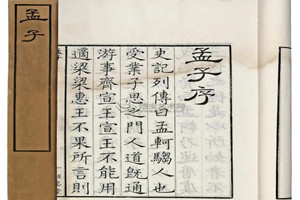 孟子
孟子序
史記列傳曰孟軻騶人也
受業子思之門人道旣通
游事齊宣王宣王不能用
適梁梁惠王不果所言則